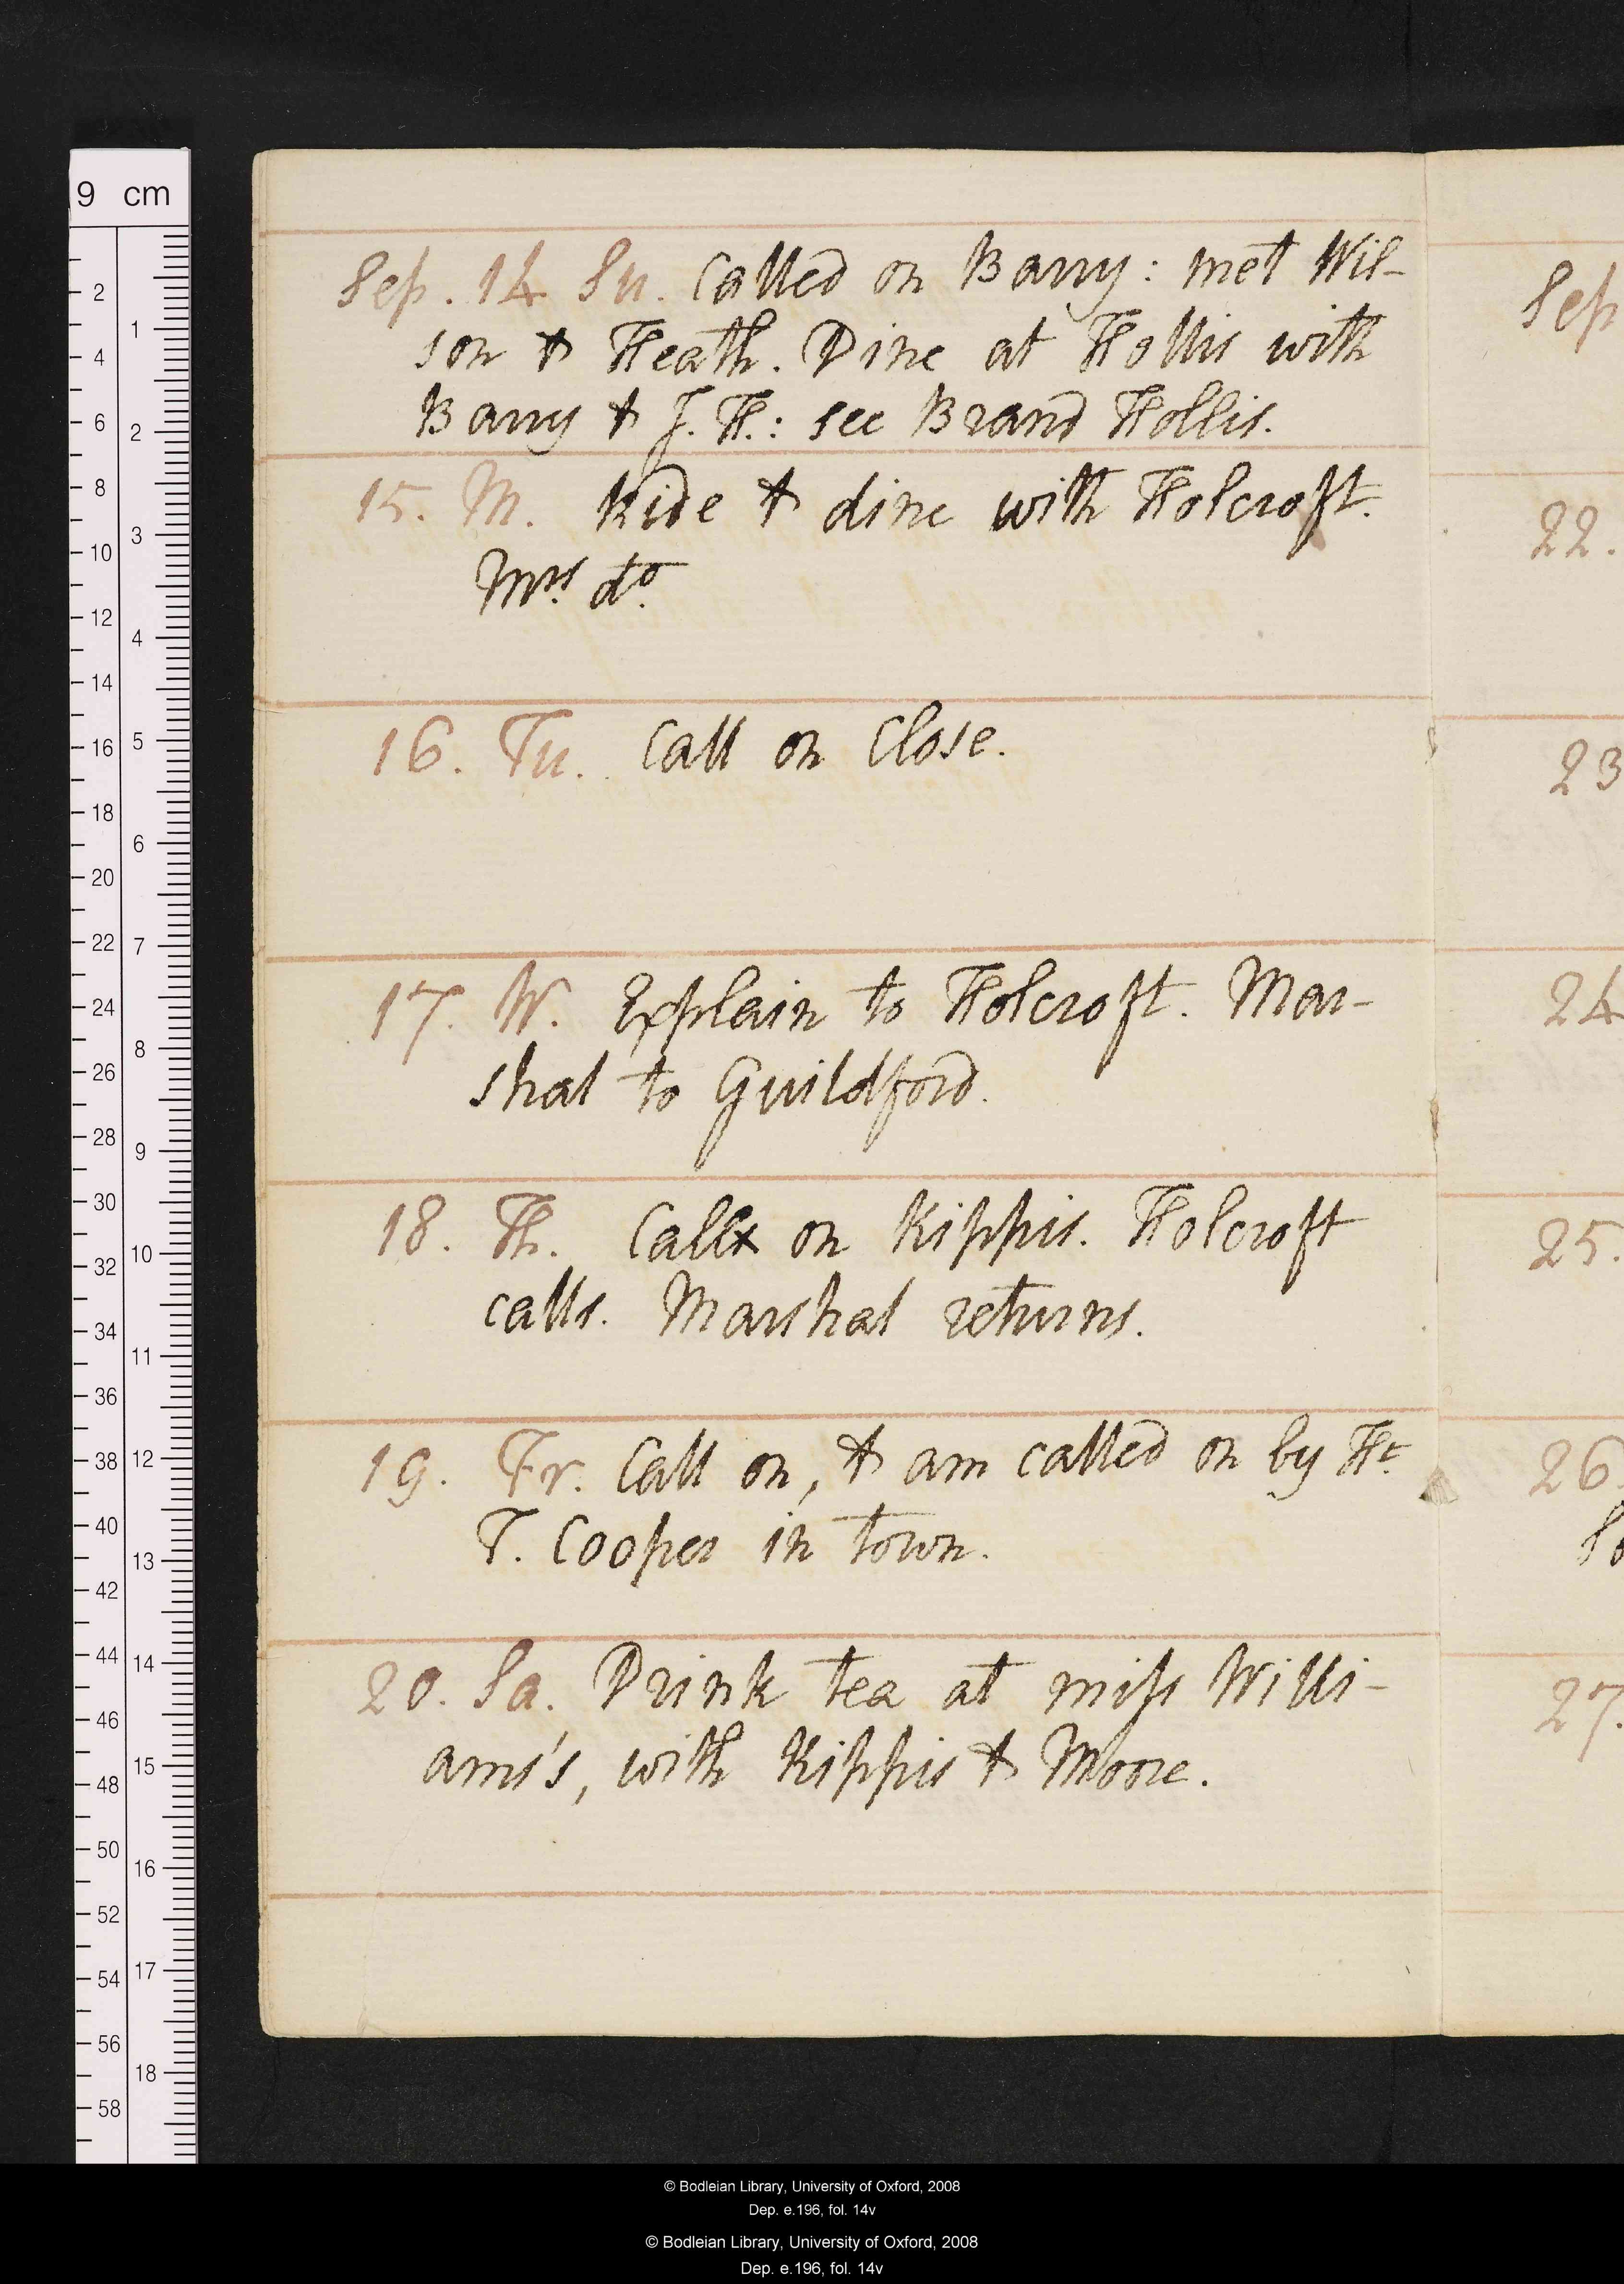 9 cm
Sep. 14 Su. Called on Barry: met Wil-
son & Heath. Dine at Hollis with
Barry & J. H.: see Brand Hollis.
15. M. Ride & dine with Holcroft.
Mrs do.
16. Tu. Call on Close.
17. W. Explain to Holcroft. Mar-
shal to Guildford.
18. Th. Call on Kippis. Holcroft
calls. Marshal returns.
19. Fr. Call on, & am called on by Ht.
T. Cooper in town.
20. Sa. Drink tea at miss Willi-
ams's, with Kippis & Moore.
Sep
22.
23
24
25.
26.
So
27.
2
4
6
8
10
12
14
16
18
20
22
24
26
28
30
32
34
36
38
40
42
44
46
48
50
52
54
56
58
1
2
3
4
5
6
7
8
9
10
11
12
13
14
15
16
17
18
© Bodleian Library, University of Oxford, 2008
Dep. e.196, fol. 14v
© Bodleian Library, University of Oxford, 2008
Dep. e.196, fol. 14v